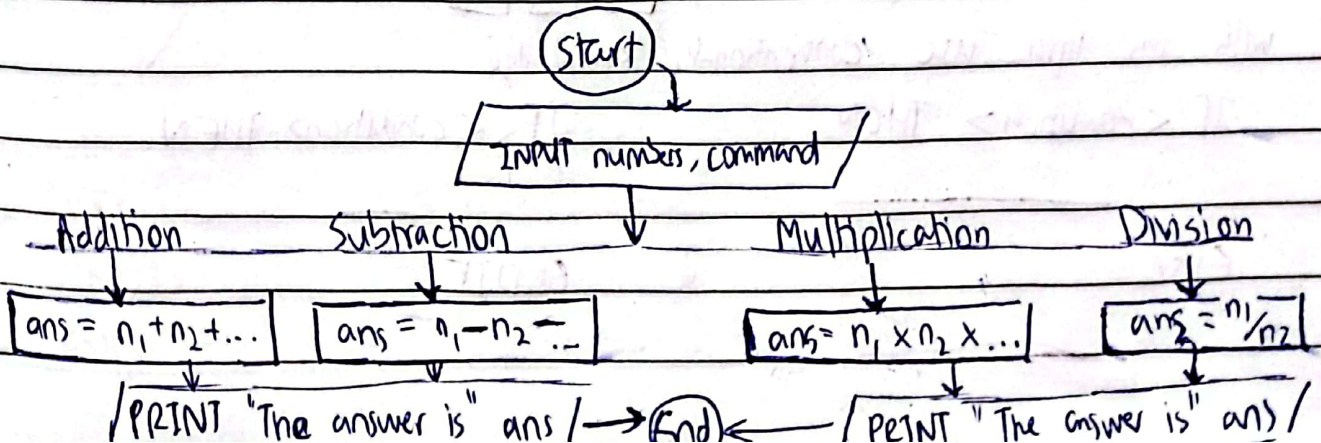 Start
INPUT numbers, command
Addition Subtraction Multiplication Division
ans = n₁ + n₂ + ... ans = n₁ - n₂ - ... ans = n₁ x n₂ x ... ans = n₁/n₂
PRINT "The answer is" ans End PRINT "The answer is" ans